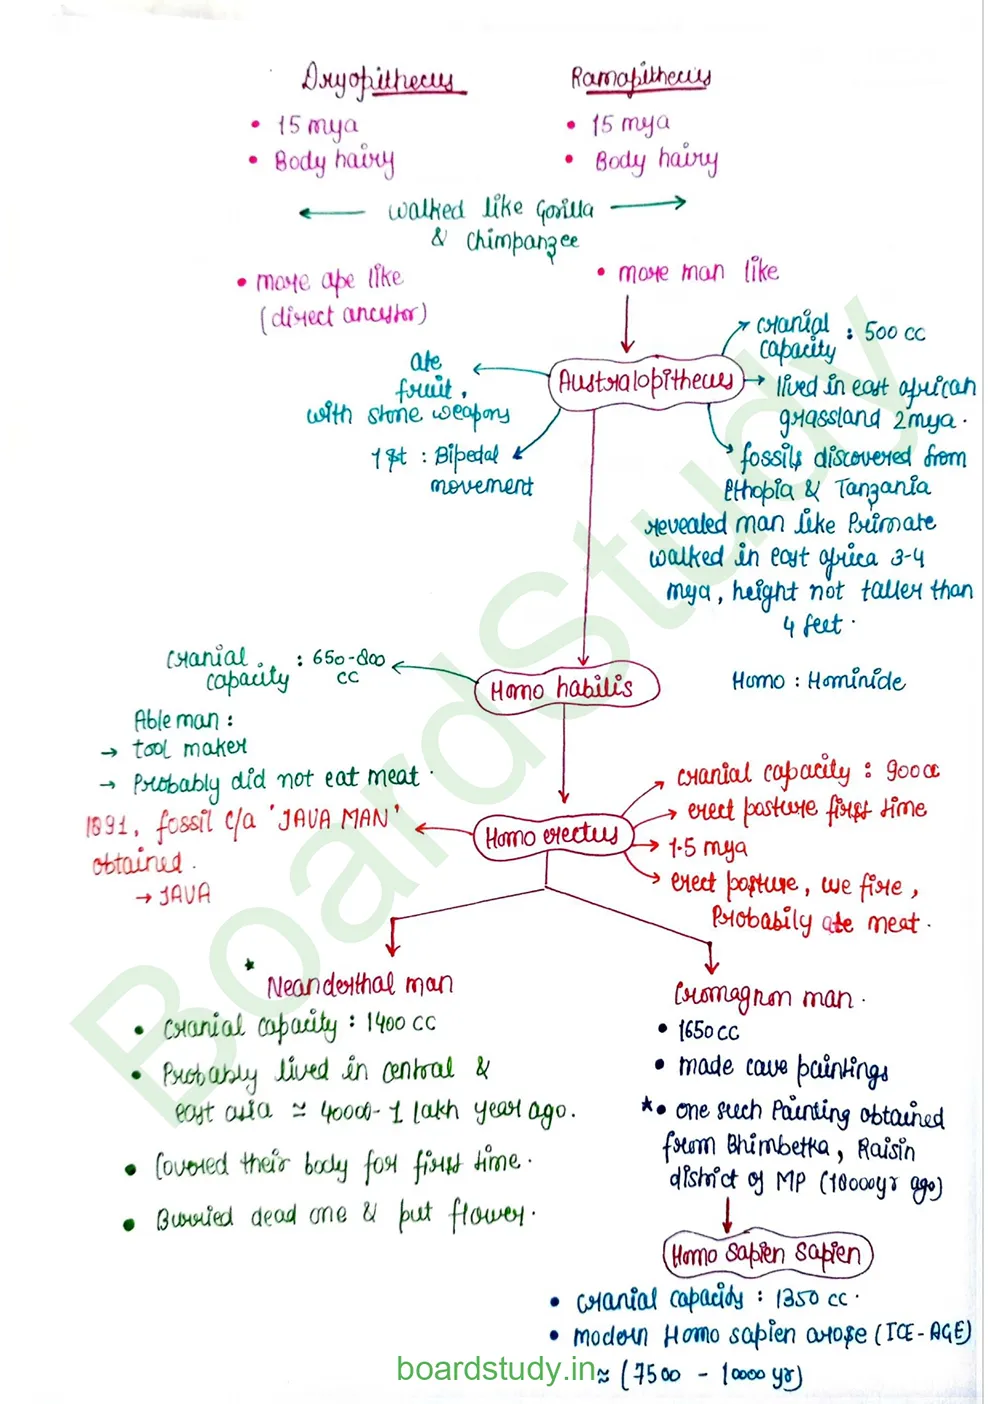 Dryopithecus
Ramapithecus
• 15 mya
• 15 mya
• Body hairy
• Body hairy
walked like Gorilla
& Chimpanzee
• more ape like
(direct ancestor)
• more man like
Australopithecus
cranial : 500 cc
capacity
lived in east african
grassland 2mya.
fossils discovered from
Ethopia & Tanzania
revealed man like Primate
walked in east africa 3-4
mya, height not taller than
4 feet.
ate
fruit,
with stone weapons
1st : Bipedal
movement
Homo habilis
Homo : Hominide
cranial : 650-800
capacity cc
Able man :
→ tool maker
→ Probably did not eat meat.
Homo erectus
cranial capacity : 900cc
erect posture first time
1.5 mya
erect posture, we fire,
Probabily ate meat.
1891, fossil c/a 'JAVA MAN'
obtained.
→ JAVA
Neanderthal man
• cranial capacity : 1400 cc
• Probably lived in central &
east asia ≃ 40000-1 lakh year ago.
• Covered their body for first time.
• Burried dead one & put flower.
Cromagnon man.
• 1650 cc
• made cave paintings
• one such Painting obtained
from Bhimbetka, Raisin
district of MP (18000yr ago)
Homo sapien sapien
• cranial capacity : 1350 cc.
• modern Homo sapien arose (ICE-AGE)
≈ (7500 - 10000 yr)
BoardStudy
boardstudy.in